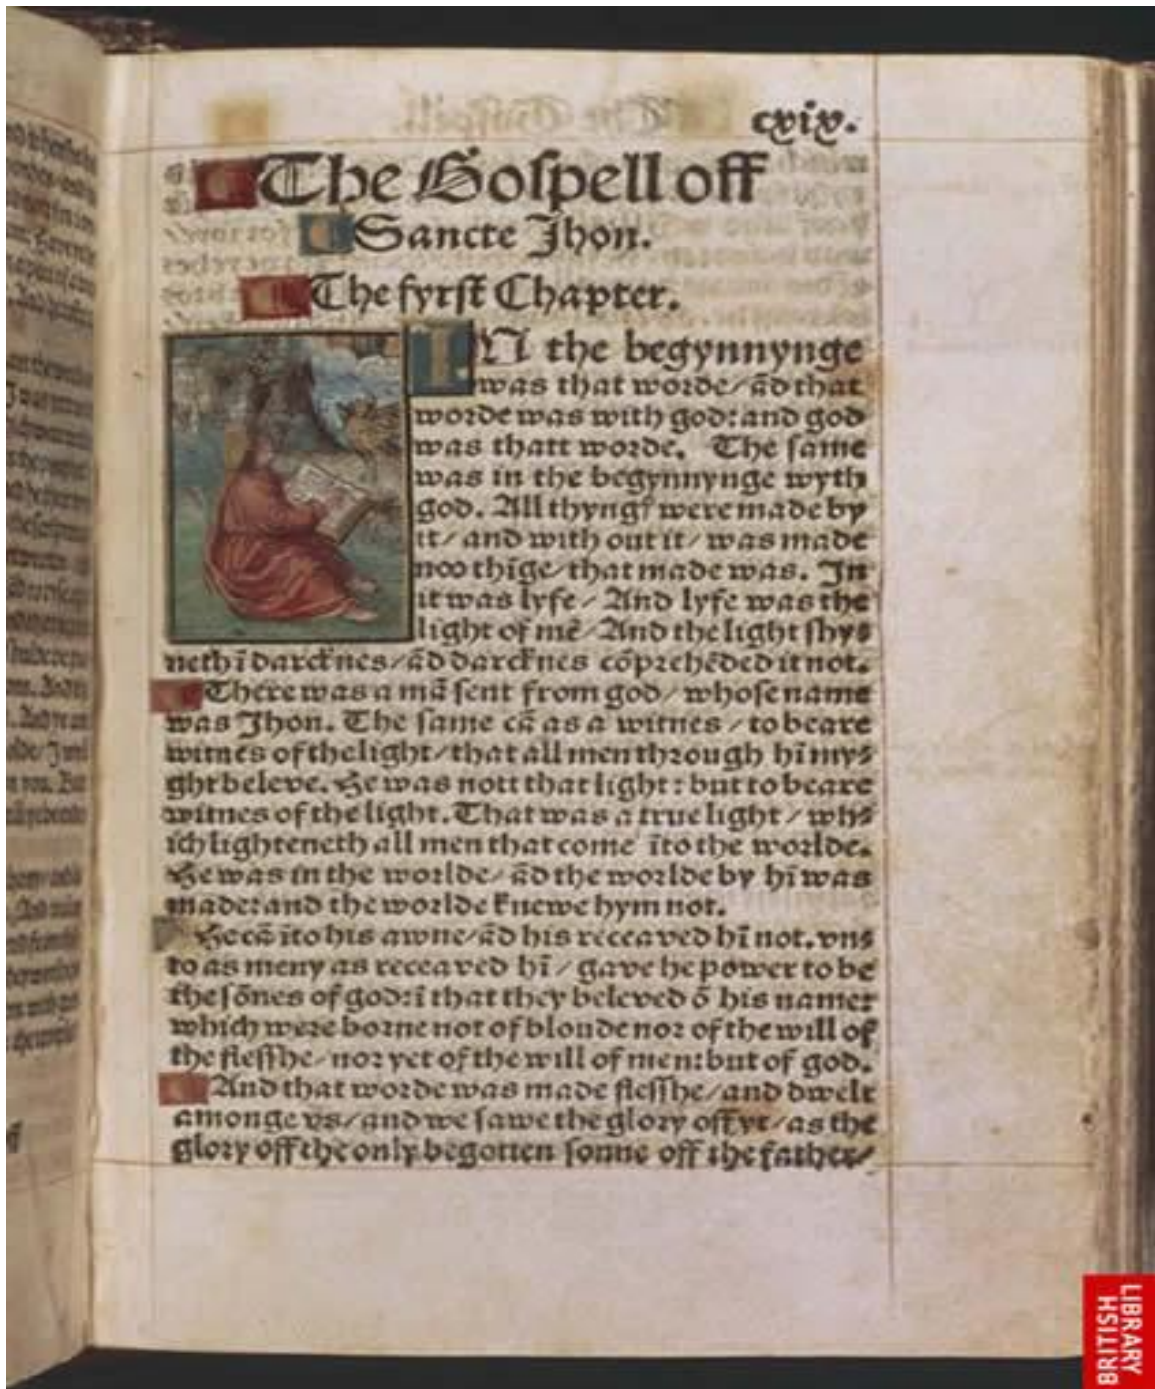 cxix.
The Gospell off
Sancte Jhon.
The fyrst Chapter.
IN the begynnynge
was that worde/ ãd that
worde was with god: and god
was thatt worde. The same
was in the begynnynge wyth
god. All thyngꝭ were made by
it/ and with out it/ was made
noo thĩge/ that made was. In
it was lyfe/ And lyfe was the
light of mẽ/ And the light shy⸗
neth ĩ darcknes/ ãd darcknes cõprehẽded it not.
There was a mã sent from god/ whose name
was Jhon. The same cã as a witnes/ to beare
witnes of the light/ that all men through hĩ my⸗
ght beleve. He was nott that light: but to beare
witnes of the light. That was a true light/ wh⸗
ich lighteneth all men that come ĩto the worlde.
He was in the worlde/ ãd the worlde by hĩ was
made: and the worlde knewe hym not.
He cã ĩto his awne/ ãd his receaved hĩ not. vn⸗
to as meny as receaved hĩ/ gave he power to be
the sõnes of god: ĩ that they beleved õ his name:
which were borne not of bloude nor of the will of
the flesshe/ nor yet of the will of men: but of god.
And that worde was made flesshe/ and dwelt
amonge vs/ and we sawe the glory off yt/ as the
glory off the only begotten sonne off the father/
LIBRARY
BRITISH